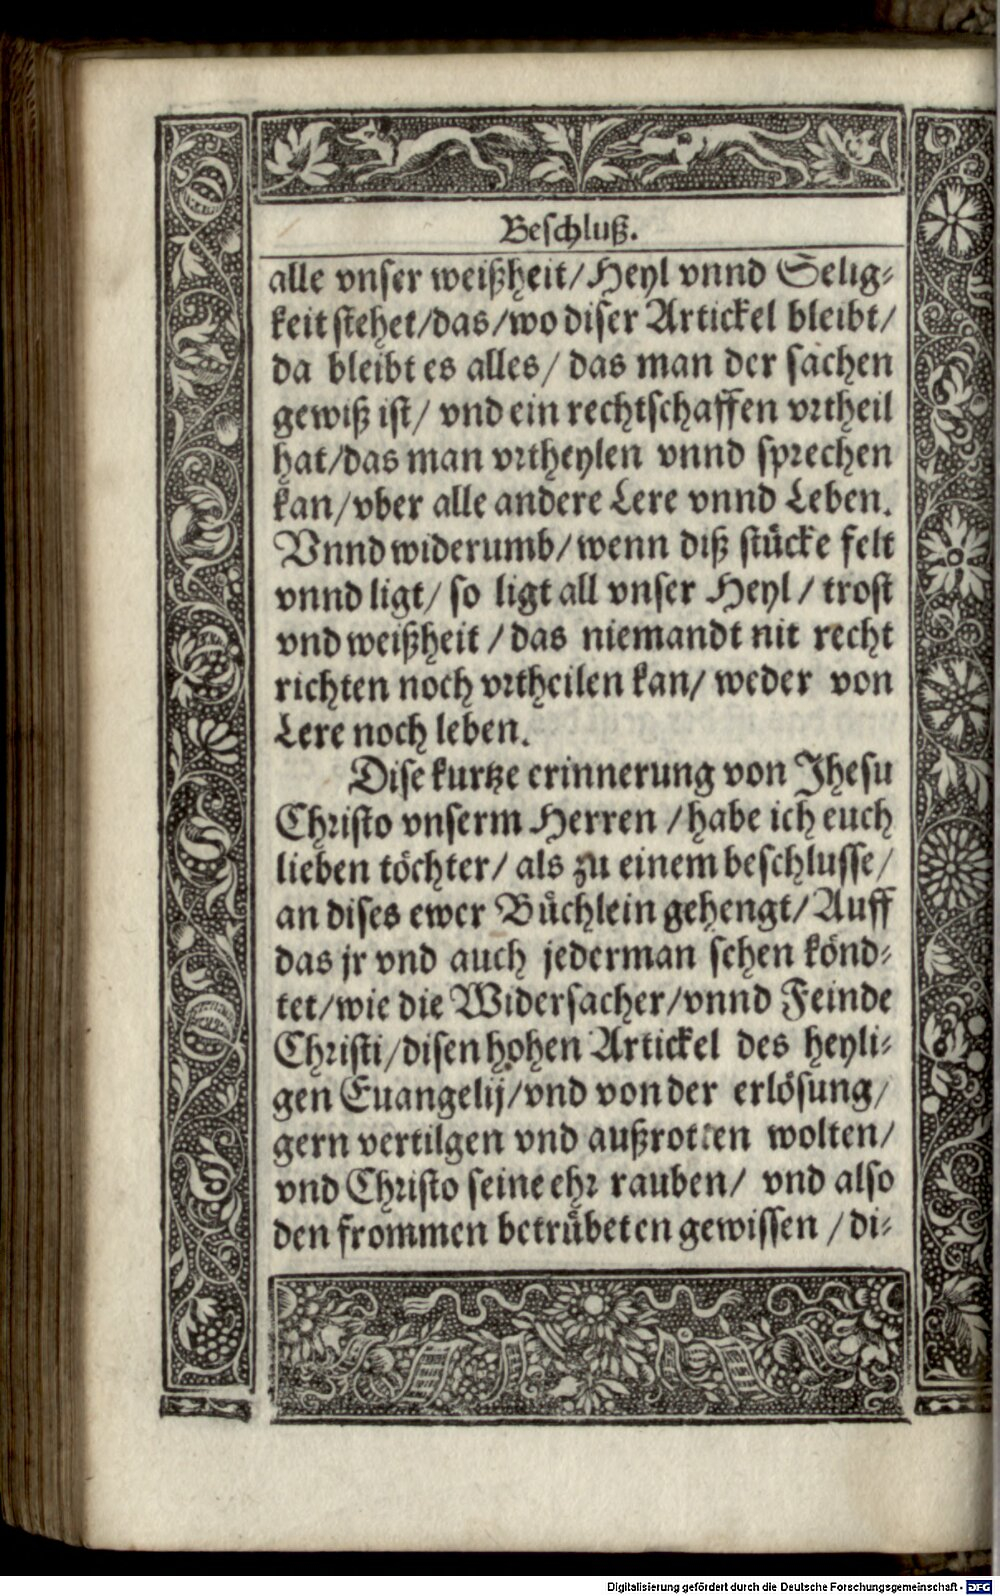 Beschluß.
alle vnser weißheit/ Heyl vnnd Selig⸗
keit stehet/das/wo diser Artickel bleibt/
da bleibt es alles/ das man der sachen
gewiß ist/ vnd ein rechtschaffen vrtheil
hat/das man vrtheylen vnnd sprechen
kan/vber alle andere Lere vnnd Leben.
Vnnd widerumb/wenn diß stücke felt
vnnd ligt/ so ligt all vnser Heyl/ trost
vnd weißheit/das niemandt nit recht
richten noch vrtheilen kan/ weder von
Lere noch leben.
Dise kurtze erinnerung von Jhesu
Christo vnserm Herren/habe ich euch
lieben töchter/ als zu einem beschlusse/
an dises ewer Büchlein gehengt/Auff
das jr vnd auch jederman sehen könd⸗
tet/wie die Widersacher/vnnd Feinde
Christi/disen hohen Artickel des heyli⸗
gen Euangelij/vnd von der erlösung/
gern vertilgen vnd außrotten wolten/
vnd Christo seine ehr rauben/ vnd also
den frommen betrübeten gewissen/di⸗
Digitalisierung gefördert durch die Deutsche Forschungsgemeinschaft - DFG